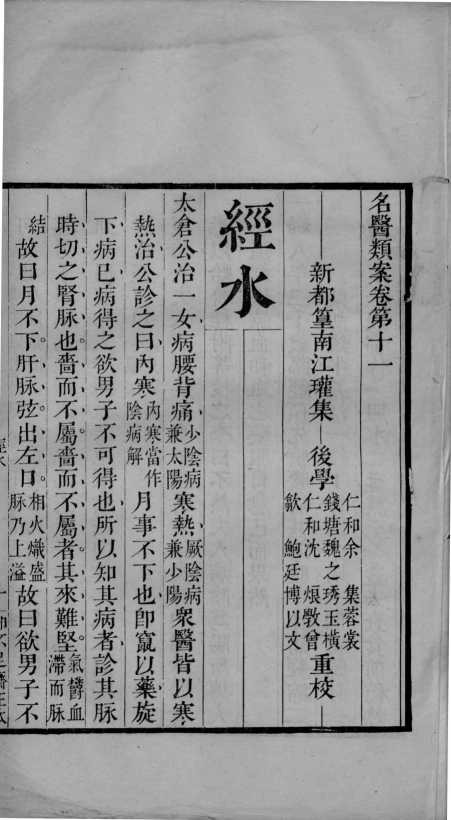 名醫類案卷第十一
新都篁南江瓘集 後學 仁和余 集蓉裳 錢塘魏之琇玉橫 仁和沈 烺斆曾 歙 鮑廷博以文 重校
經水
太倉公治一女病腰背痛少陰病兼太陽寒熱厥陰病兼少陽衆醫皆以寒
熱治公診之曰內寒內寒當作陰病解月事不下也卽竄以藥旋
下病已病得之欲男子不可得也所以知其病者診其脉
時切之腎脉也嗇而不屬嗇而不屬者其來難堅氣欝血滯而脉
結故曰月不下肝脉弦出左口相火熾盛脉乃上溢故曰欲男子不
經水